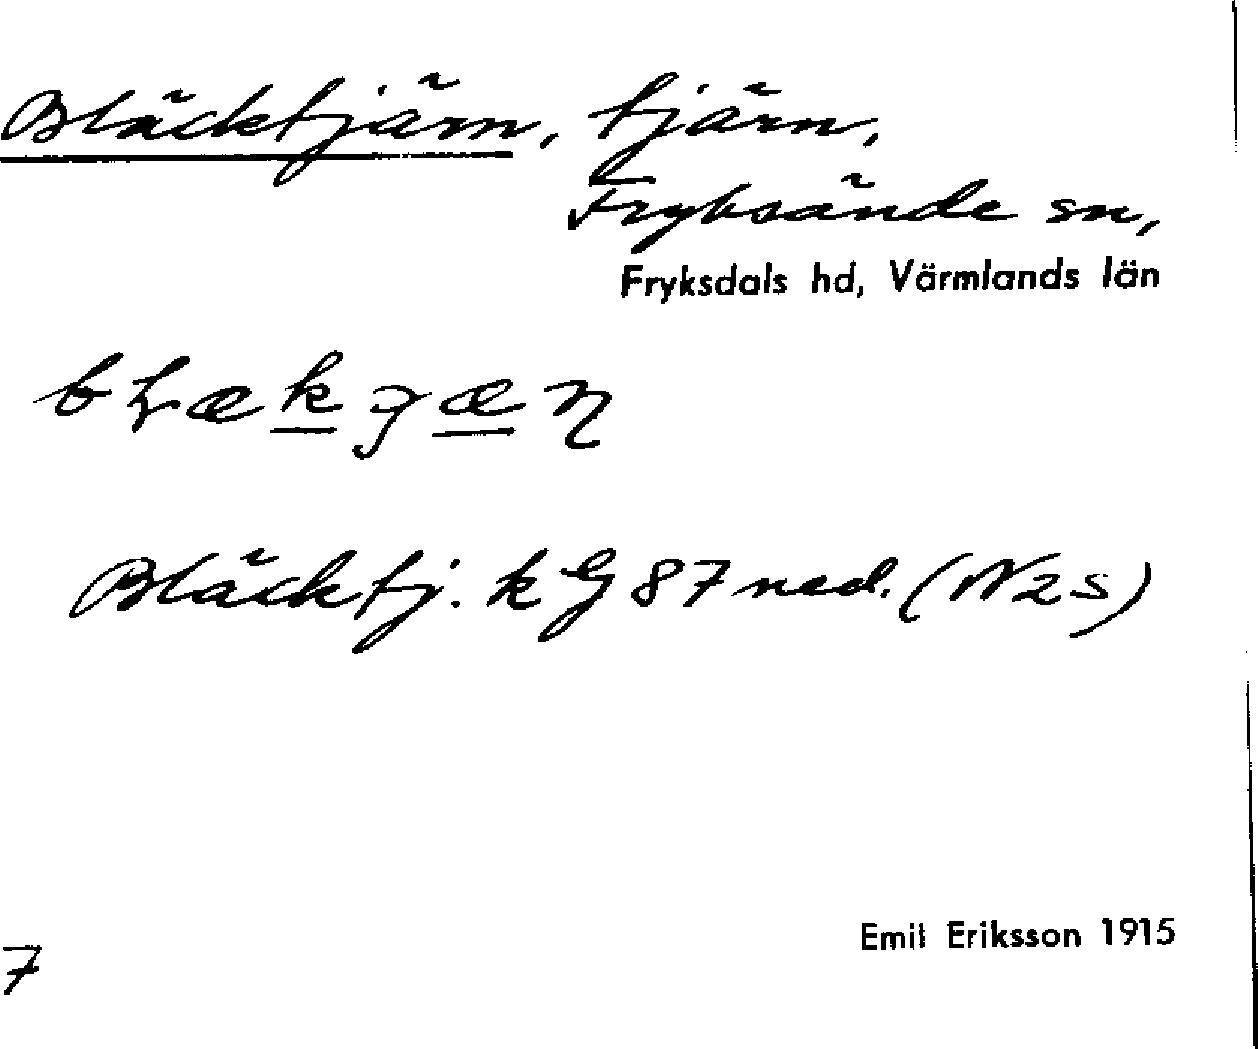 Bläcktjärn, tjärn,
Fryksände sn,
Fryksdals hd, Värmlands län
bɽækjæɳ
Bläcktj. kG 87 ned. (N2S)
Emil Eriksson 1915
7